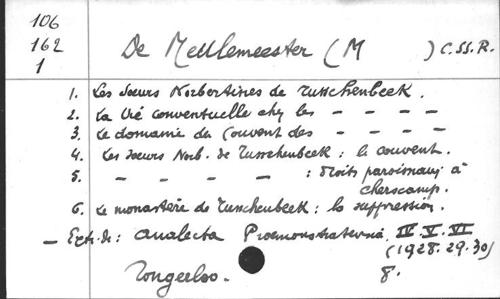 106
162
1
De Meulemeester (M ) C.SS.R.
1. Les Soeurs Norbertines de Tusschenbeek.
2. La vie conventuelle chez les - - - -
3. Le domaine du Couvent des - - - -
4. Les Soeurs Norb. de Tusschenbeek : le couvent.
5. - - - - : Droits paroissiaux à
cherscamp.
6. Le monastère de Tusschenbeek : la suppression.
- Extr. de : Analecta Praemonstratensia. IV. V. VI
(1928.29.30)
Tongerloo. 8.